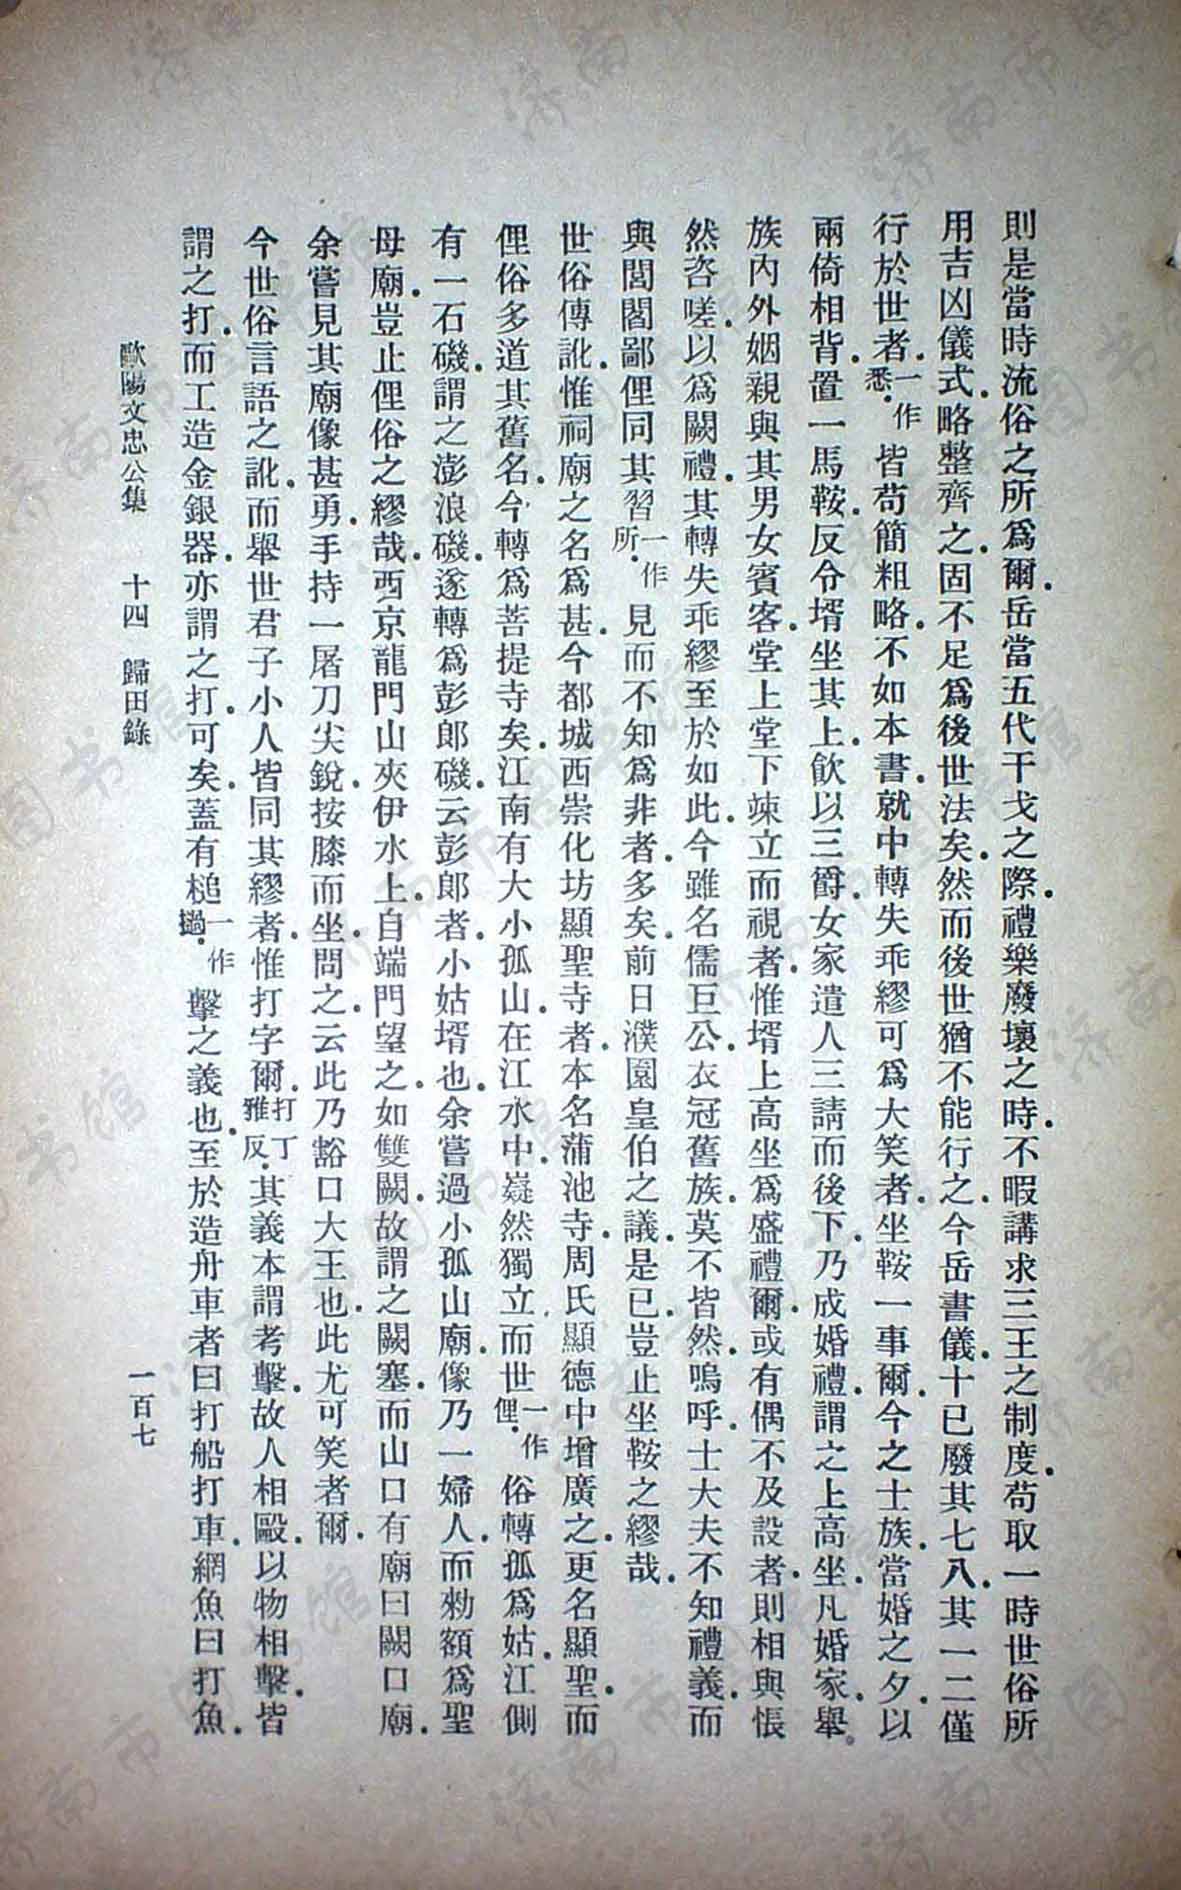 則是當時流俗之所爲爾岳當五代干戈之際禮樂廢壞之時不暇講求三王之制度苟取一時世俗所
用吉凶儀式略整齊之固不足爲後世法矣然而後世猶不能行之今岳書儀十已廢其七八其一二僅
行於世者一作悉皆苟簡粗略不如本書就中轉失乖繆可爲大笑者坐鞍一事爾今之士族當婚之夕以
兩倚相背置一馬鞍反令壻坐其上飮以三爵女家遣人三請而後下乃成婚禮謂之上高坐凡婚家舉
族內外姻親與其男女賓客堂上堂下竦立而視者惟壻上高坐爲盛禮爾或有偶不及設者則相與悵
然咨嗟以爲闕禮其轉失乖繆至於如此今雖名儒巨公衣冠舊族莫不皆然嗚呼士大夫不知禮義而
與閭閻鄙俚同其習一作所見而不知爲非者多矣前日濮園皇伯之議是已豈止坐鞍之繆哉
世俗傳訛惟祠廟之名爲甚今都城西崇化坊顯聖寺者本名蒲池寺周氏顯德中增廣之更名顯聖而
俚俗多道其舊名今轉爲菩提寺矣江南有大小孤山在江水中嶷然獨立而世一作俚俗轉孤爲姑江側
有一石磯謂之澎浪磯遂轉爲彭郎磯云彭郎者小姑壻也余嘗過小孤山廟像乃一婦人而勑額爲聖
母廟豈止俚俗之繆哉西京龍門山夾伊水上自端門望之如雙闕故謂之闕塞而山口有廟曰闕口廟
余嘗見其廟像甚勇手持一屠刀尖銳按膝而坐問之云此乃豁口大王也此尤可笑者爾
今世俗言語之訛而舉世君子小人皆同其繆者惟打字爾打丁雅反其義本謂考擊故人相毆以物相擊皆
謂之打而工造金銀器亦謂之打可矣蓋有槌一作撾擊之義也至於造舟車者曰打船打車網魚曰打魚
歐陽文忠公集 十四 歸田錄 一百七